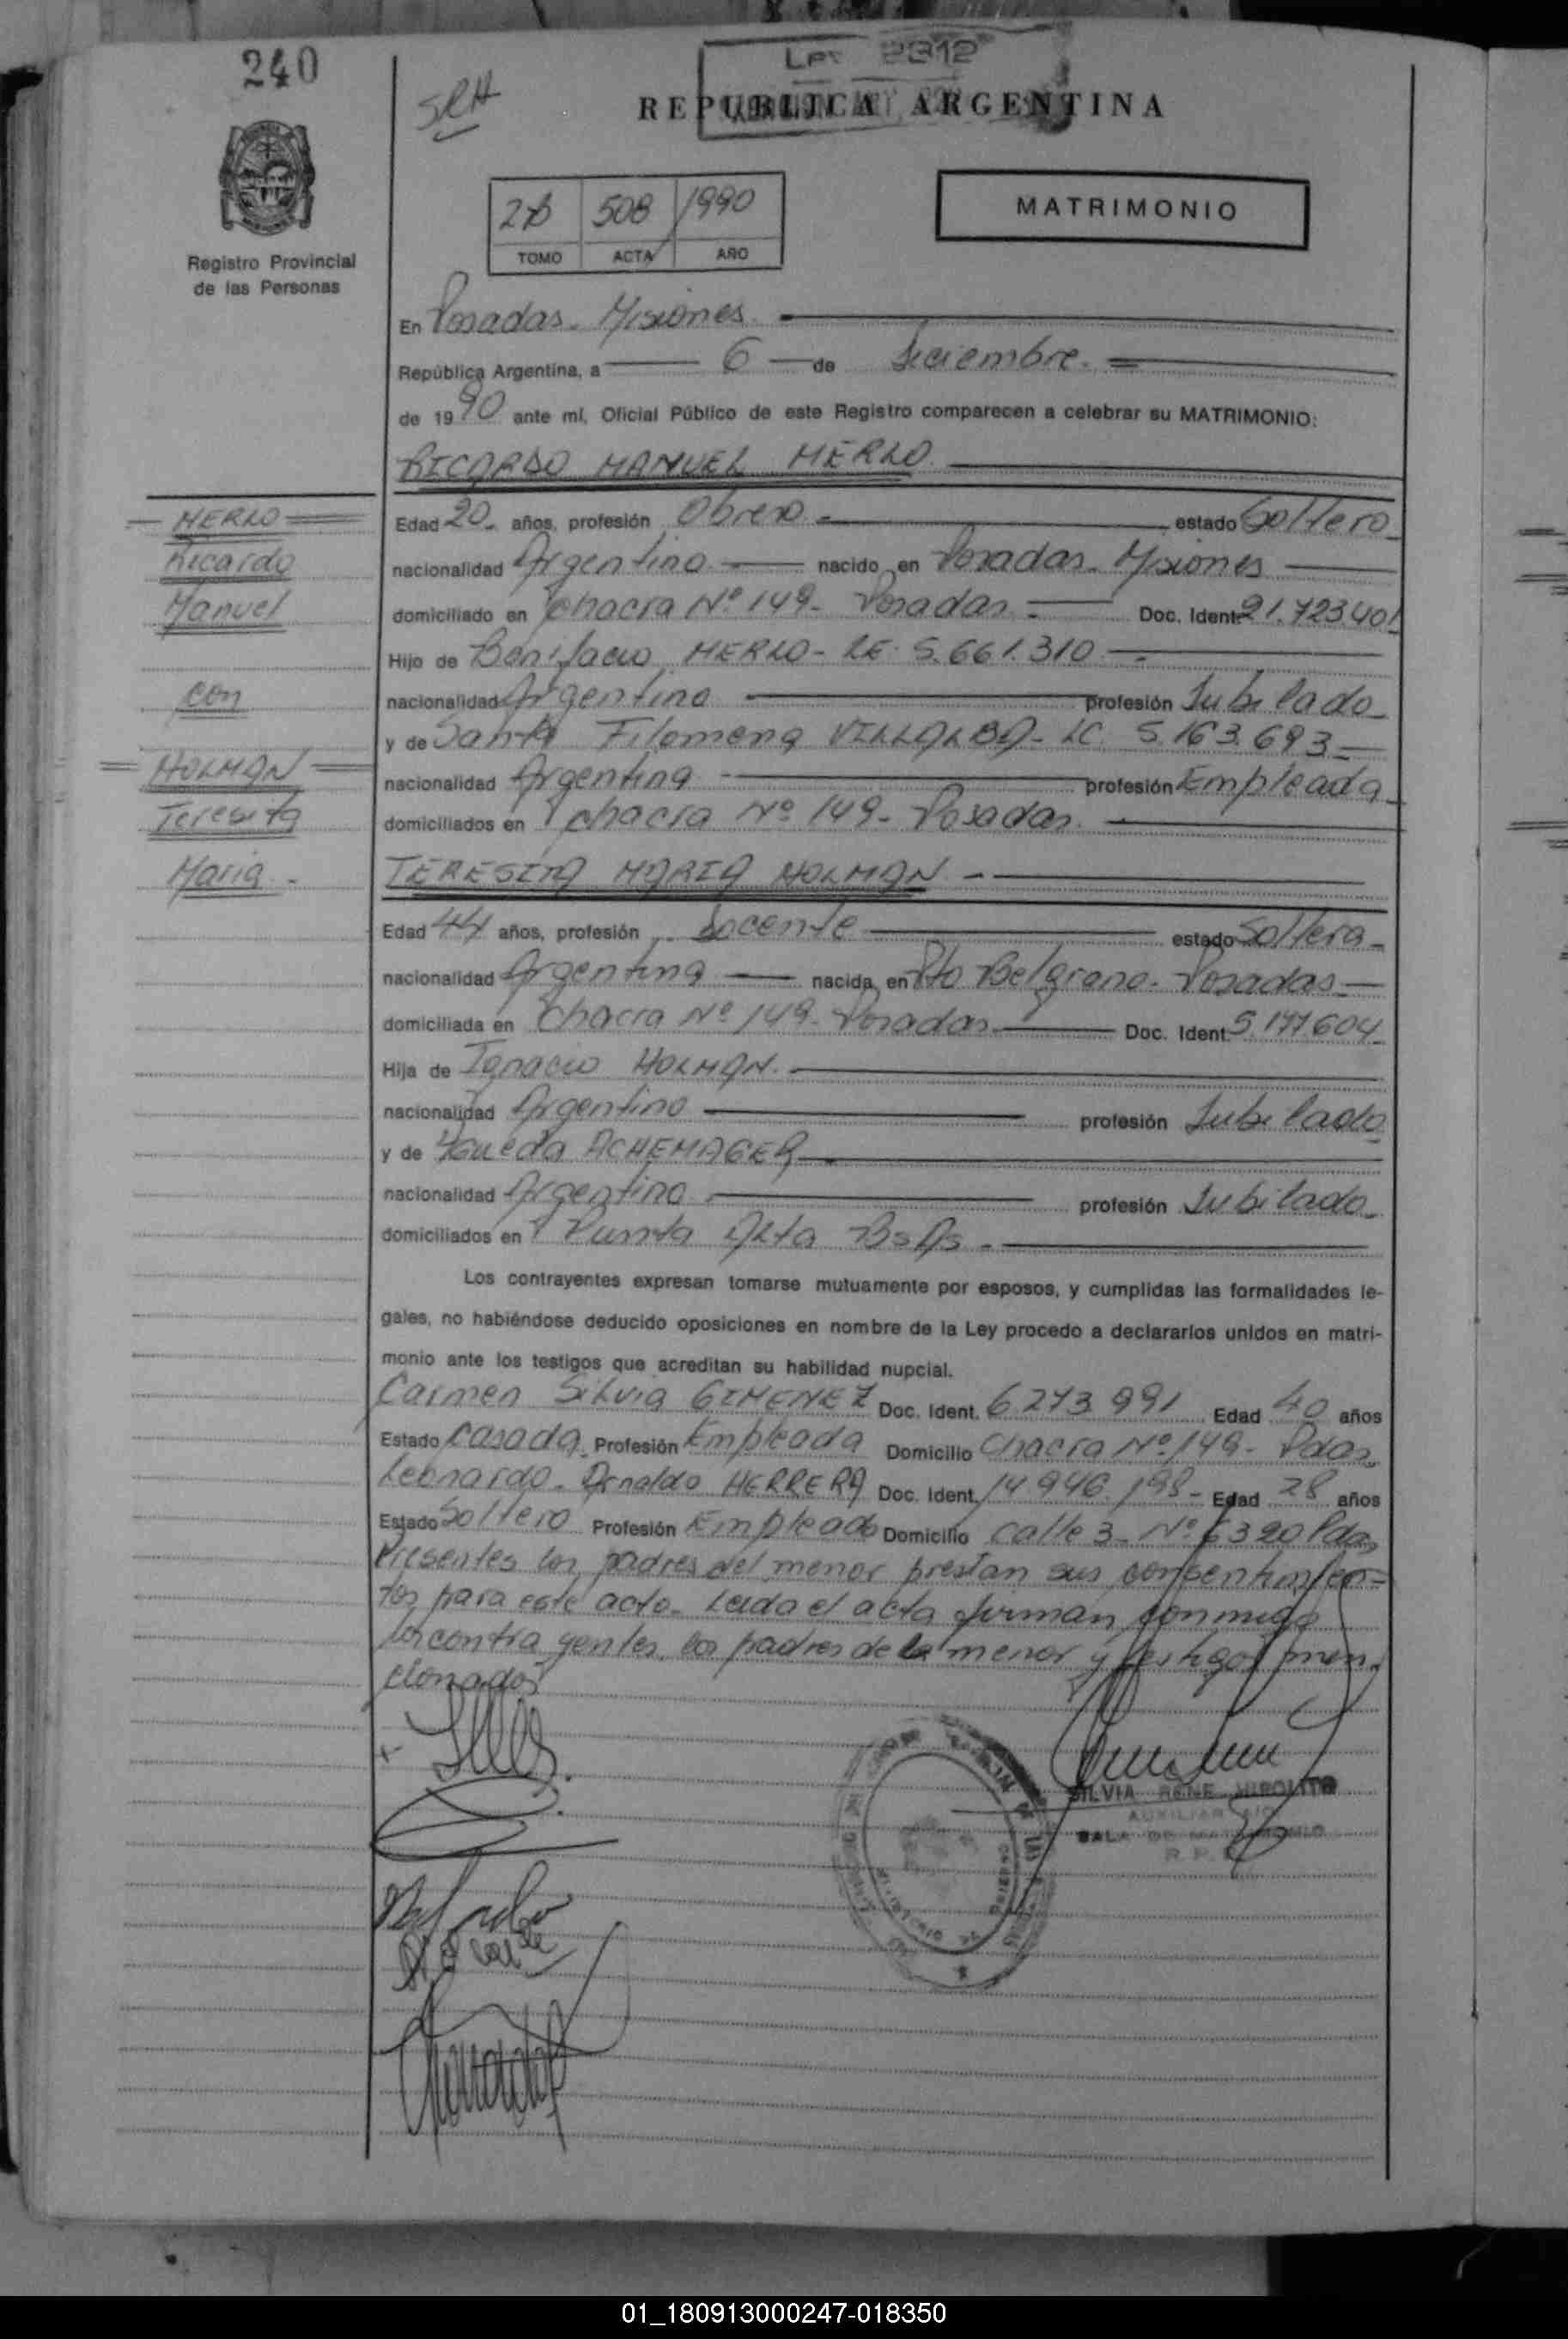 240
SRH
Ley 2312
REPUBLICA ARGENTINA
508 1990
TOMO ACTA AÑO
MATRIMONIO
Registro Provincial
de las Personas
En Posadas. Misiones.
República Argentina, a 6 de Diciembre.
de 1990 ante mí, Oficial Público de este Registro comparecen a celebrar su MATRIMONIO:
RICARDO MANUEL MERLO
MERLO
Ricardo
Manuel
con
HOLMAN
Teresita
Maria.
Edad 20 años, profesión Obrero estado Soltero
nacionalidad Argentino nacido en Posadas. Misiones
domiciliado en Chacra Nº 149- Posadas Doc. Ident. 21.723.401
Hijo de Bonifacio MERLO- LE. 5.661.310
nacionalidad Argentino profesión Jubilado
y de Santa Filomena VILLALBA- LC. 5.163.693
nacionalidad Argentina profesión Empleada
domiciliados en Chacra Nº 149- Posadas.
TERESITA MARIA HOLMAN
Edad 44 años, profesión Docente estado Soltera
nacionalidad Argentina nacida en Pto Belgrano. Posadas
domiciliada en Chacra Nº 149- Posadas Doc. Ident. 5.177.604
Hija de Ignacio HOLMAN.
nacionalidad Argentino profesión Jubilado
y de Agueda ACHEMAGER
nacionalidad Argentino profesión Jubilado
domiciliados en Punta Alta Bs As.
Los contrayentes expresan tomarse mutuamente por esposos, y cumplidas las formalidades le-
gales, no habiéndose deducido oposiciones en nombre de la Ley procedo a declararlos unidos en matri-
monio ante los testigos que acreditan su habilidad nupcial.
Carmen Silvia GIMENEZ Doc. Ident. 6.273.991 Edad 40 años
Estado Casada Profesión Empleada Domicilio Chacra Nº 149- Pdas.
Leonardo Arnaldo HERRERA Doc. Ident. 14.946.198- Edad 28 años
Estado Soltero Profesión Empleado Domicilio Calle 3- Nº 6320 Pdas
Presentes los padres del menor prestan sus consentimien=
tos para este acto. Leida el acta firman conmigo
los contrayentes, los padres de la menor y testigos men
cionados
SILVIA RENE HIPOLITO
AUXILIAR
SALA DE MATRIMONIO
R. P.
01_180913000247-018350